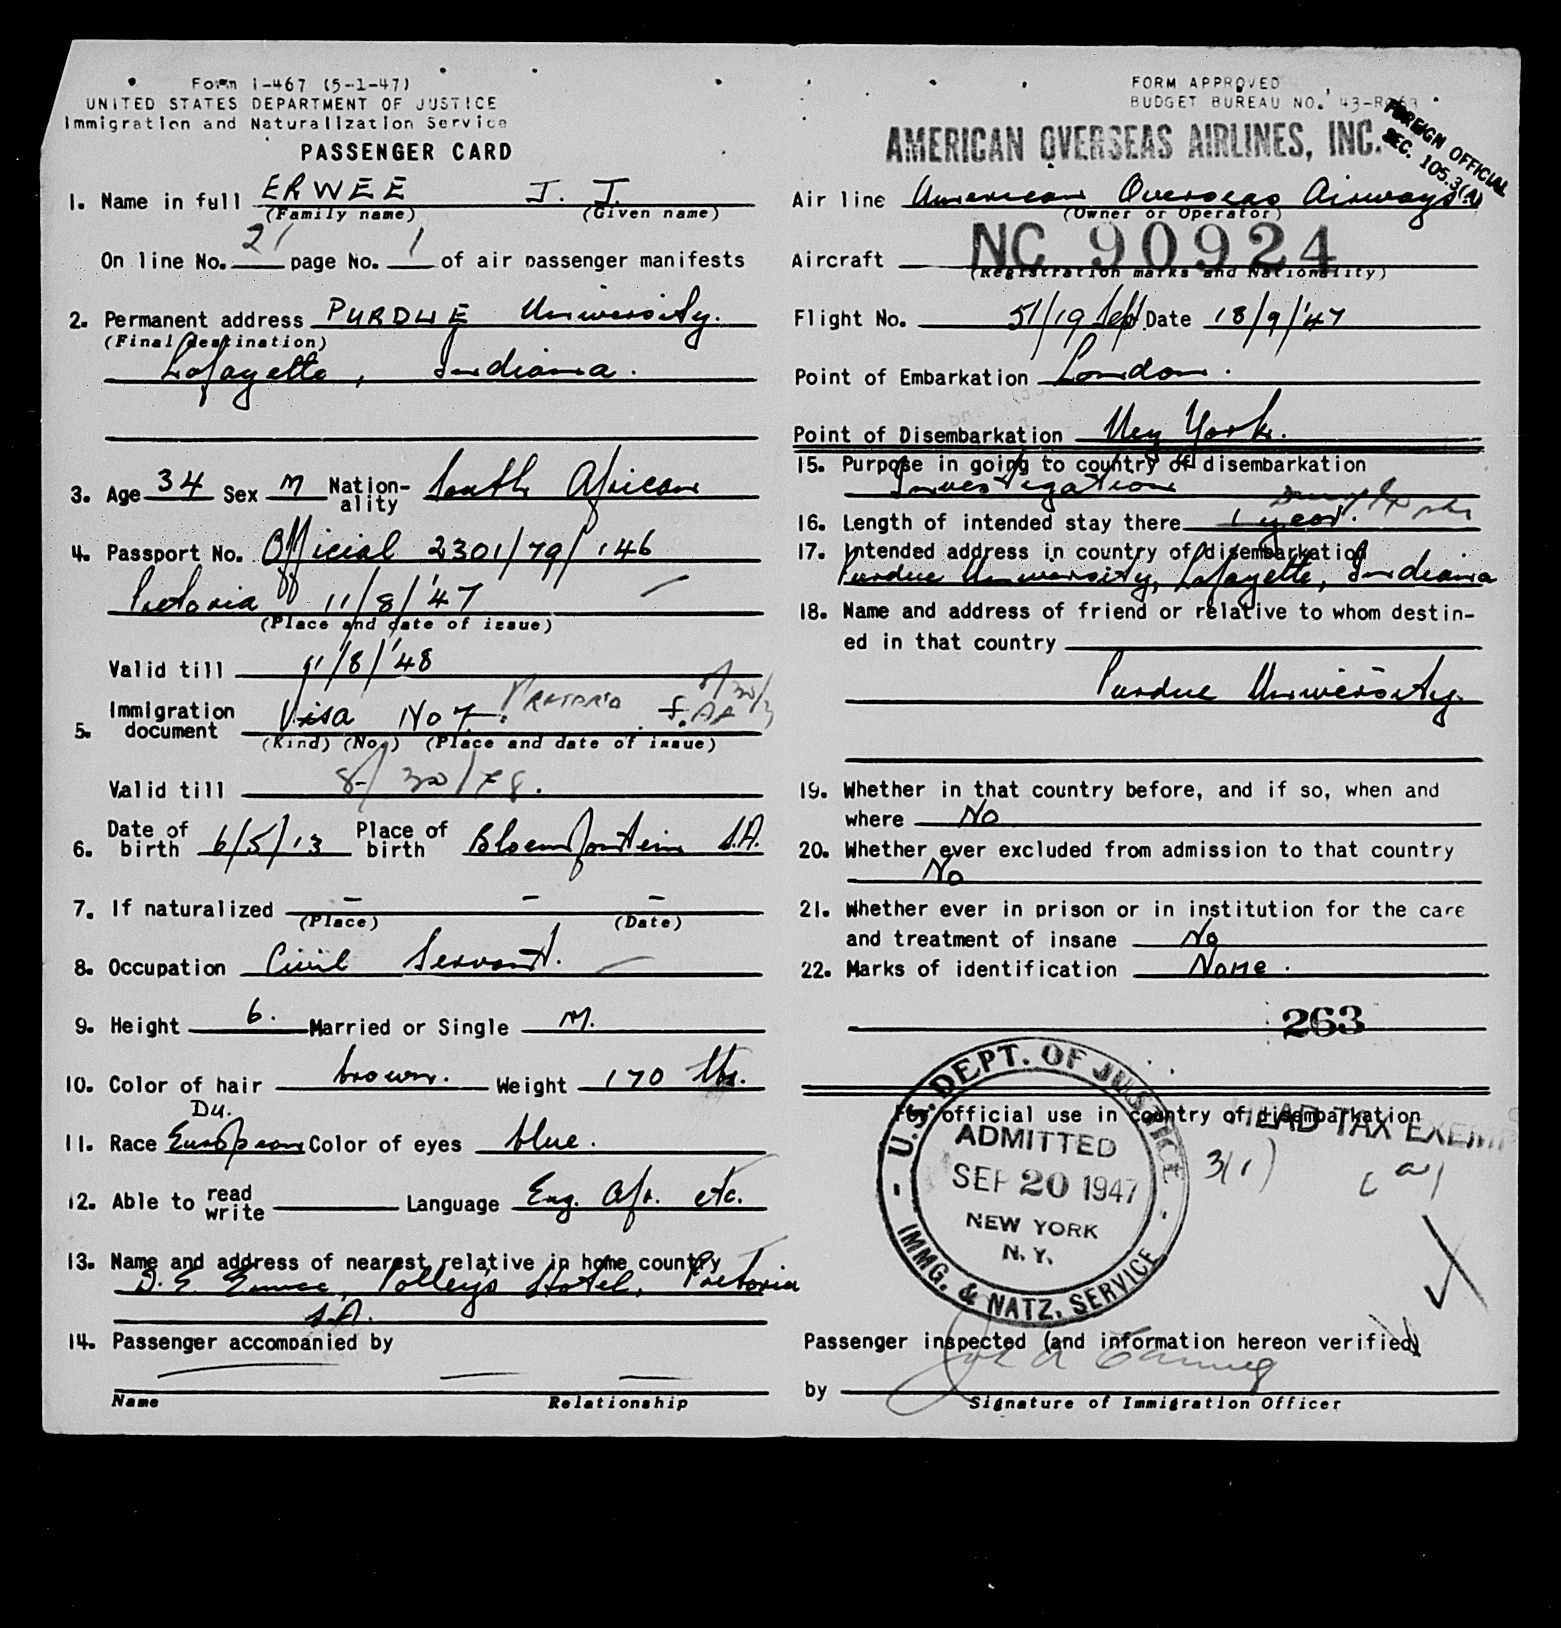 Form I-467 (5-1-47)
UNITED STATES DEPARTMENT OF JUSTICE
Immigration and Naturalization Service
PASSENGER CARD
1. Name in full ERWEE J. J.
(Family name) (Given name)
On line No. 21 page No. 1 of air passenger manifests
2. Permanent address PURDUE University.
(Final destination)
Lafayette, Indiana.
3. Age 34 Sex M Nation-ality South African
4. Passport No. Official 2301/79/146
Pretoria 11/8/'47
(Place and date of issue)
Valid till 11/8/'48
5. Immigration document Visa No 7. PRETORIA
(Kind) (No.) (Place and date of issue)
Valid till 8/30/48.
6. Date of birth 6/5/13 Place of birth Bloemfontein S.A.
7. If naturalized – – –
(Place) (Date)
8. Occupation Civil Servant.
9. Height 6. Married or Single M.
10. Color of hair brown. Weight 170 lbs.
Du.
11. Race European Color of eyes blue.
12. Able to read write Language Eng. Afr. etc.
13. Name and address of nearest relative in home country
D. E. Erwee, Polley's Hotel, Pretoria
S.A.
14. Passenger accompanied by
Name Relationship
FORM APPROVED
BUDGET BUREAU NO. 43-R
FOREIGN OFFICIAL
SEC. 105.3(A)
AMERICAN OVERSEAS AIRLINES, INC.
Air line American Overseas Airways
(Owner or Operator)
Aircraft NC 90924
(Registration marks and Nationality)
Flight No. 51/19 Sept Date 18/9/'47
Point of Embarkation London.
Point of Disembarkation New York.
15. Purpose in going to country of disembarkation
Investigation
16. Length of intended stay there 1 year.
17. Intended address in country of disembarkation
Purdue University, Lafayette, Indiana
18. Name and address of friend or relative to whom destin-
ed in that country
Purdue University.
19. Whether in that country before, and if so, when and
where No
20. Whether ever excluded from admission to that country
No
21. Whether ever in prison or in institution for the care
and treatment of insane No
22. Marks of identification None.
263
For official use in country of disembarkation
HEAD TAX EXEMP
3(1)
U.S. DEPT. OF JUSTICE
ADMITTED
SEP 20 1947
NEW YORK
N. Y.
IMMG. & NATZ. SERVICE
Passenger inspected (and information hereon verified)
by
Signature of Immigration Officer